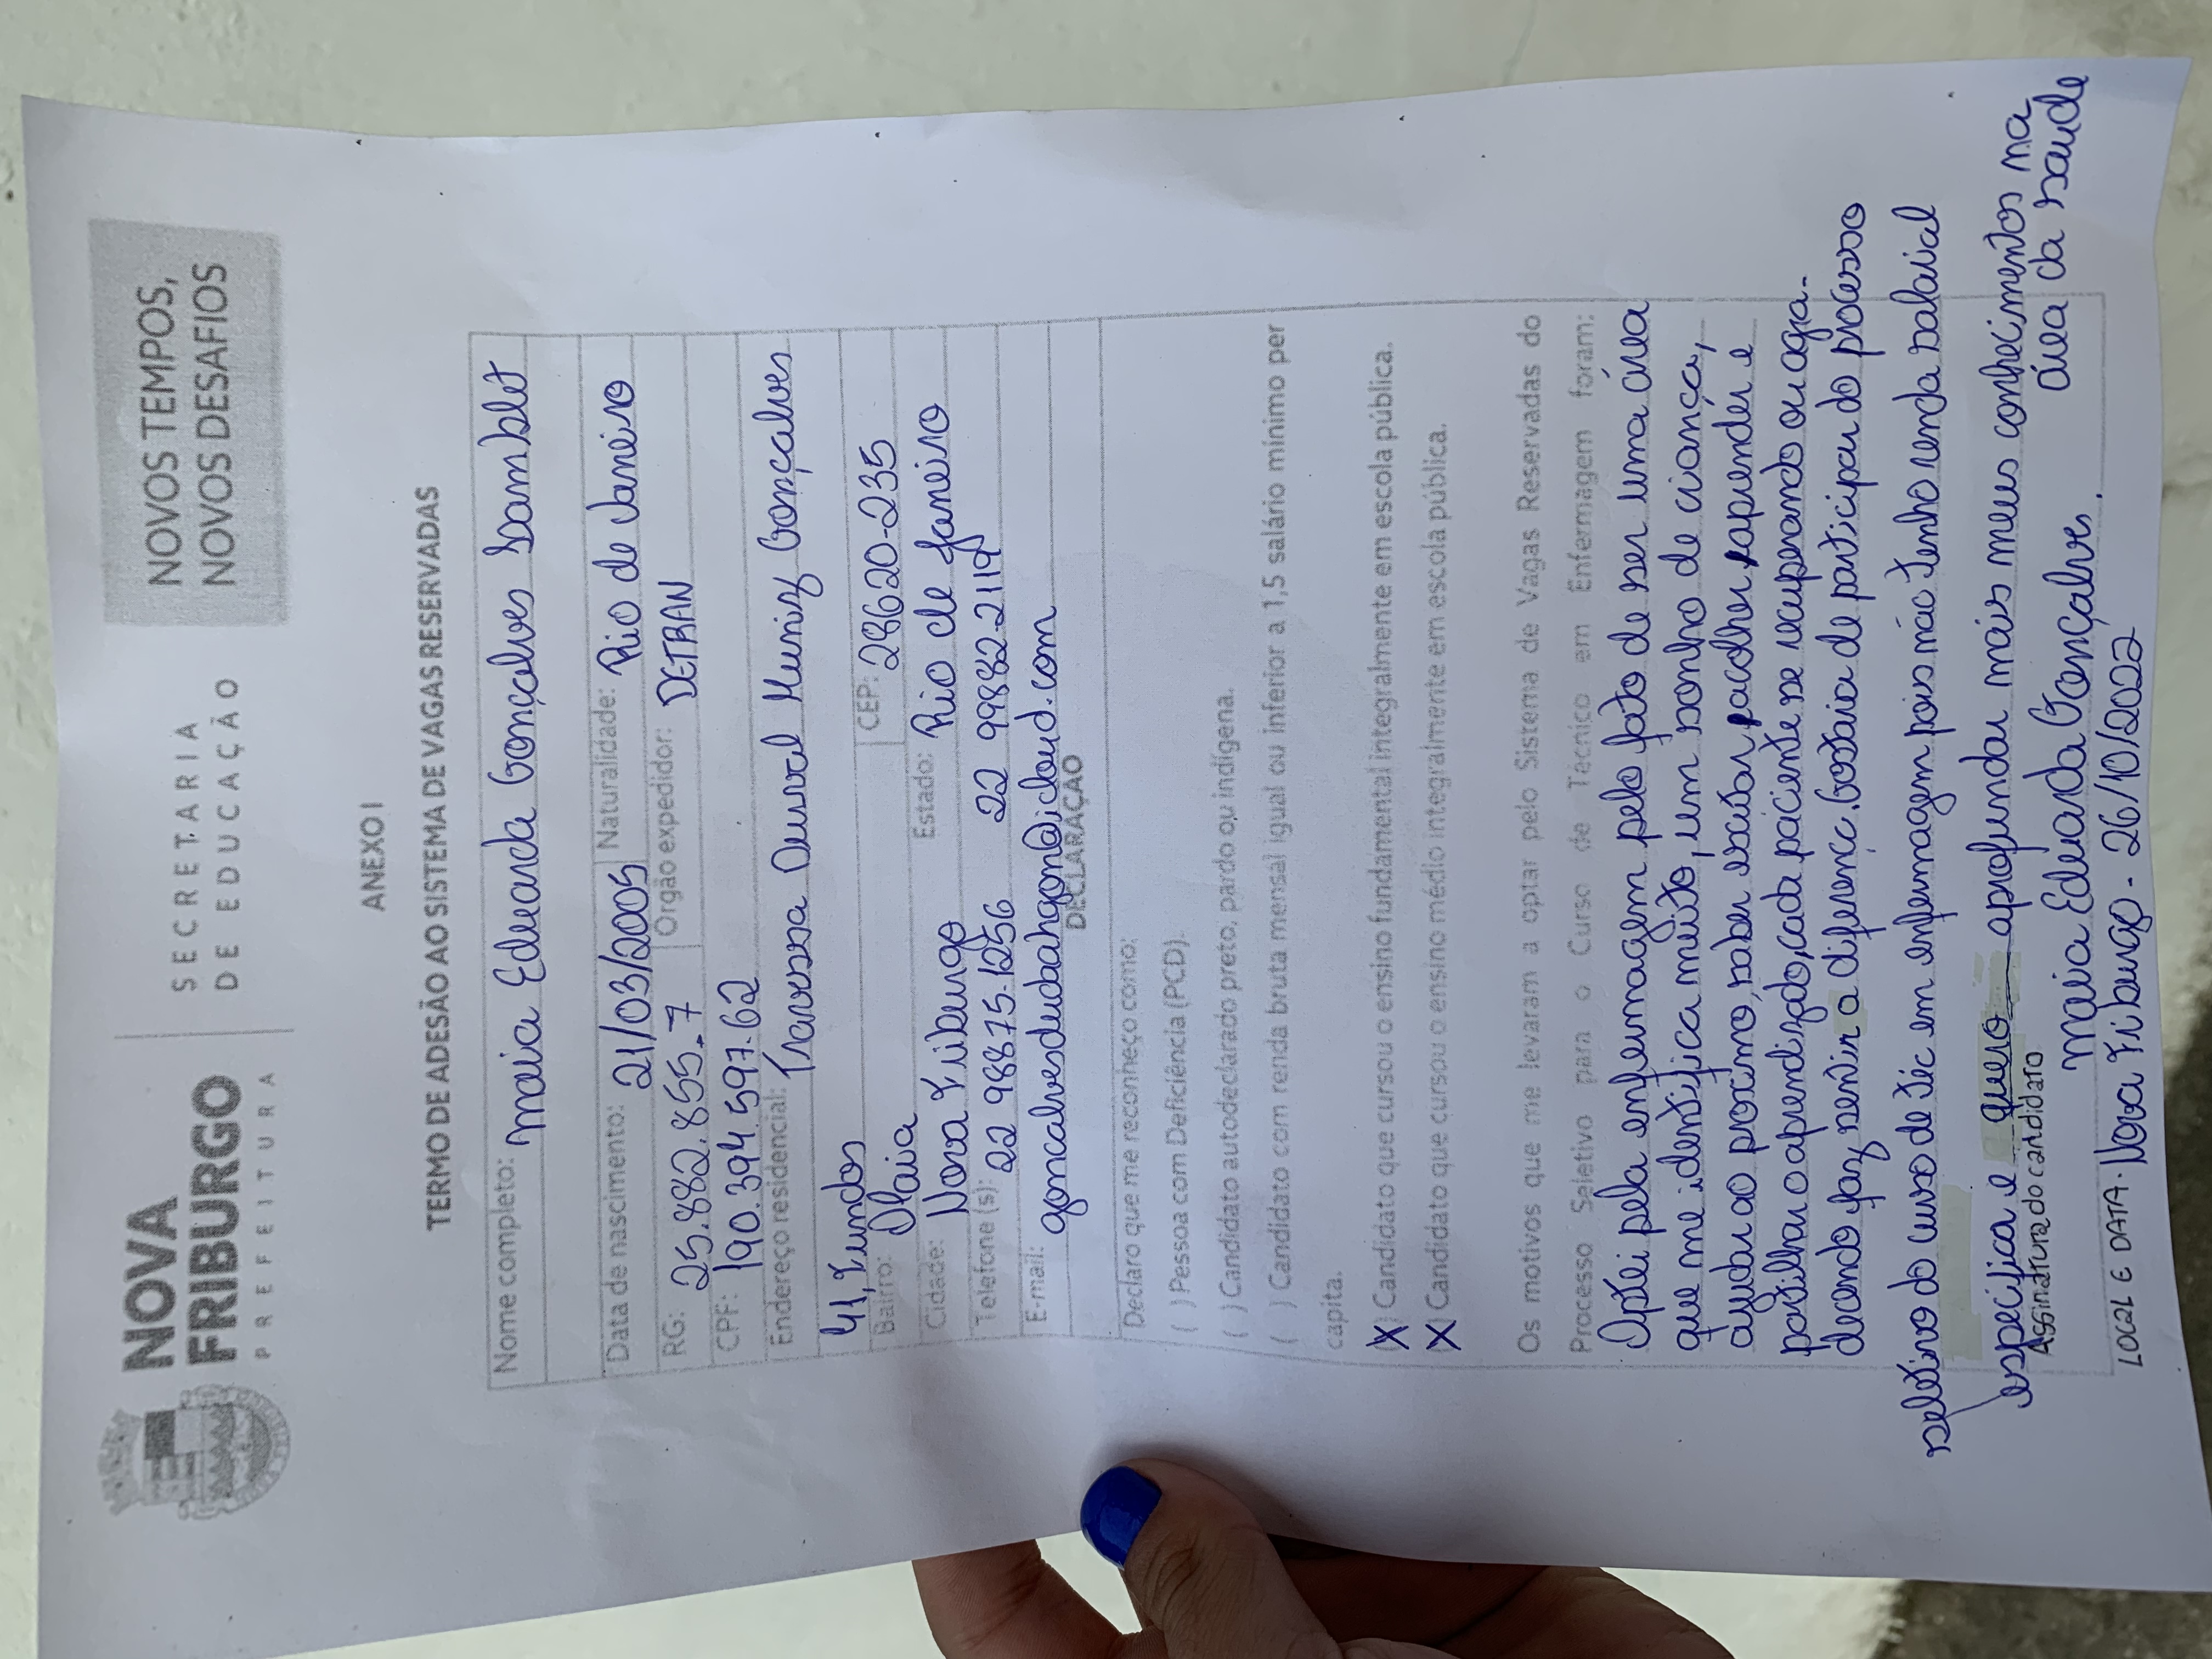 NOVA
FRIBURGO
PREFEITURA
SECRETARIA
DE EDUCAÇÃO
NOVOS TEMPOS,
NOVOS DESAFIOS
ANEXO I
TERMO DE ADESÃO AO SISTEMA DE VAGAS RESERVADAS
Nome completo: Maria Eduarda Gonçalves Damblet
Data de nascimento: 21/03/2005 Naturalidade: Rio de Janeiro
RG: 25.882.855-7 Órgão expedidor: DETRAN
CPF: 190.394.597-62
Endereço residencial: Travessa Durval Muniz Gonçalves
41, Fundos
Bairro: Olaria CEP: 28620-235
Cidade: Nova Friburgo Estado: Rio de Janeiro
Telefone (s): 22 98875-1256 22 99882-2119
E-mail: goncalvesdudaahgon@icloud.com
DECLARAÇÃO
Declaro que me reconheço como:
( ) Pessoa com Deficiência (PCD).
( ) Candidato autodeclarado preto, pardo ou indígena.
( ) Candidato com renda bruta mensal igual ou inferior a 1,5 salário mínimo per
capita.
(X) Candidato que cursou o ensino fundamental integralmente em escola pública.
(X) Candidato que cursou o ensino médio integralmente em escola pública.
Os motivos que me levaram a optar pelo Sistema de Vagas Reservadas do
Processo Seletivo para o Curso de Técnico em Enfermagem foram:
Optei pela enfermagem pelo fato de ser uma área
que me identifica muito, um sonho de criança,
ajudar ao proximo, saber escutar, acolher, aprender e
partilhar o aprendizado, cada paciente se recuperando ou agra-
decendo faz sentir a diferença. Gostaria de participar do processo
seletivo do curso de téc em enfermagem pois não tenho renda salarial
especifica e quero aprofundar mais meus conhecimentos na
área da saude
Assinatura do candidato
Maria Eduarda Gonçalves.
LOCAL E DATA. Nova Friburgo - 26/10/2022